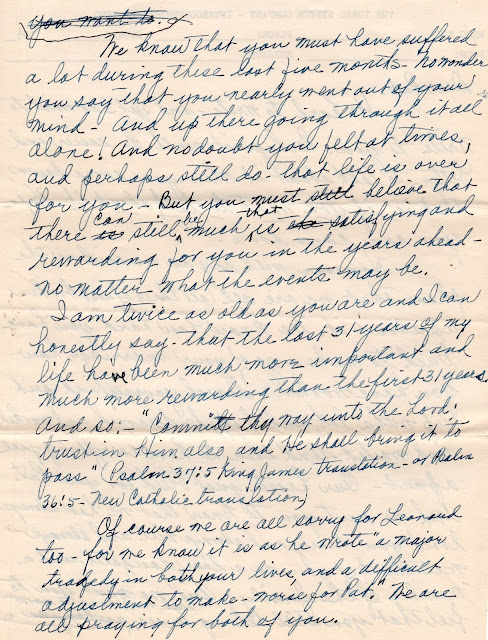 you want to.
We know that you must have suffered
a lot during these last five months - no wonder
you say that you nearly went out of your
mind - And up there going through it all
alone! And no doubt you felt at times,
and perhaps still do - that life is over
for you - But you must still believe that
there is can still be much that is satisfying and
rewarding for you in the years ahead -
no matter what the events may be.
I am twice as old as you are and I can
honestly say - that the last 31 years of my
life have been much more important and
much more rewarding than the first 31 years.
And so:- "Commit thy way unto the Lord;
trust in Him also, and He shall bring it to
pass" (Psalm 37:5 King James translation - or Psalm
36:5 - New Catholic translation)
Of course we are all sorry for Leonard
too - for we know it is as he wrote "a major
tragedy in both your lives, and a difficult
adjustment to make - worse for Pat." We are
all praying for both of you.